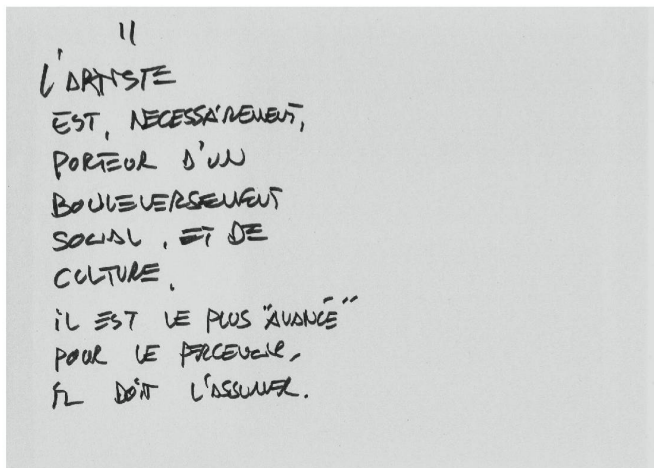 11
L'ARTISTE
EST, NECESSAIREMENT,
PORTEUR D'UN
BOULEVERSEMENT
SOCIAL, ET DE
CULTURE.
IL EST LE PLUS "AVANCÉ"
POUR LE PERCEVOIR,
IL DOIT L'ASSUMER.